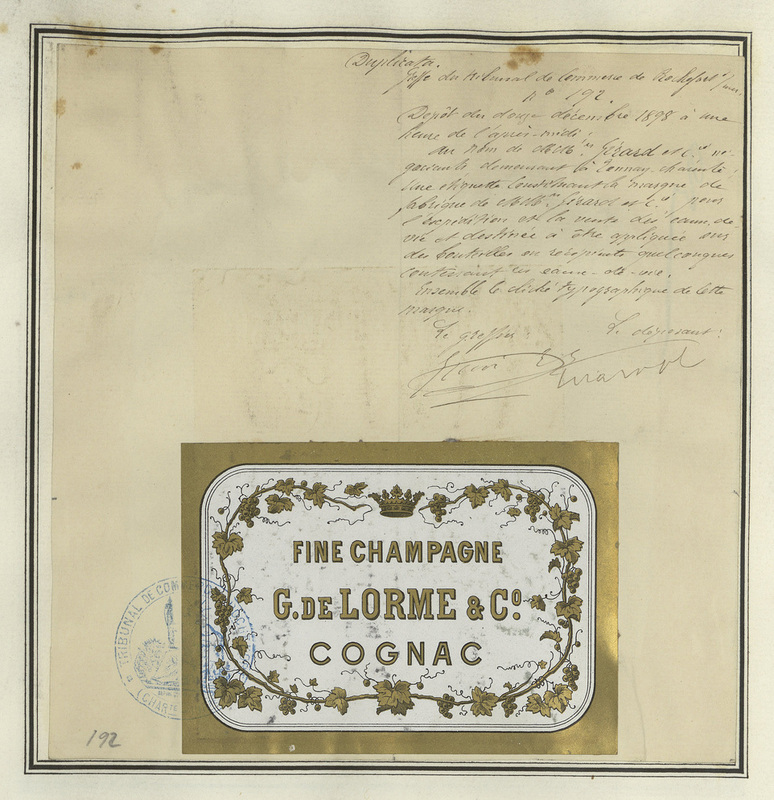 Duplicata.
Greffe du tribunal de Commerce de Rochefort s/mer.
N° 192.
Dépôt du douze décembre 1898 à une
heure de l'après-midi.
Au nom de MM.rs Girard et Cie né-
gociants demeurant à Tonnay-charente,
d'une étiquette constituant la marque de
fabrique de MM.rs Girard et Cie pour
l'expédition et la vente des eaux-de-
vie et destinée à être appliquée sur
des bouteilles ou récipients quelconques
contenant des eaux-de-vie.
Ensemble le cliché typographique de cette
marque.
Le greffier Le déposant:
FINE CHAMPAGNE
G. DE LORME & Co.
COGNAC
TRIBUNAL DE COM
(CHARTE
192